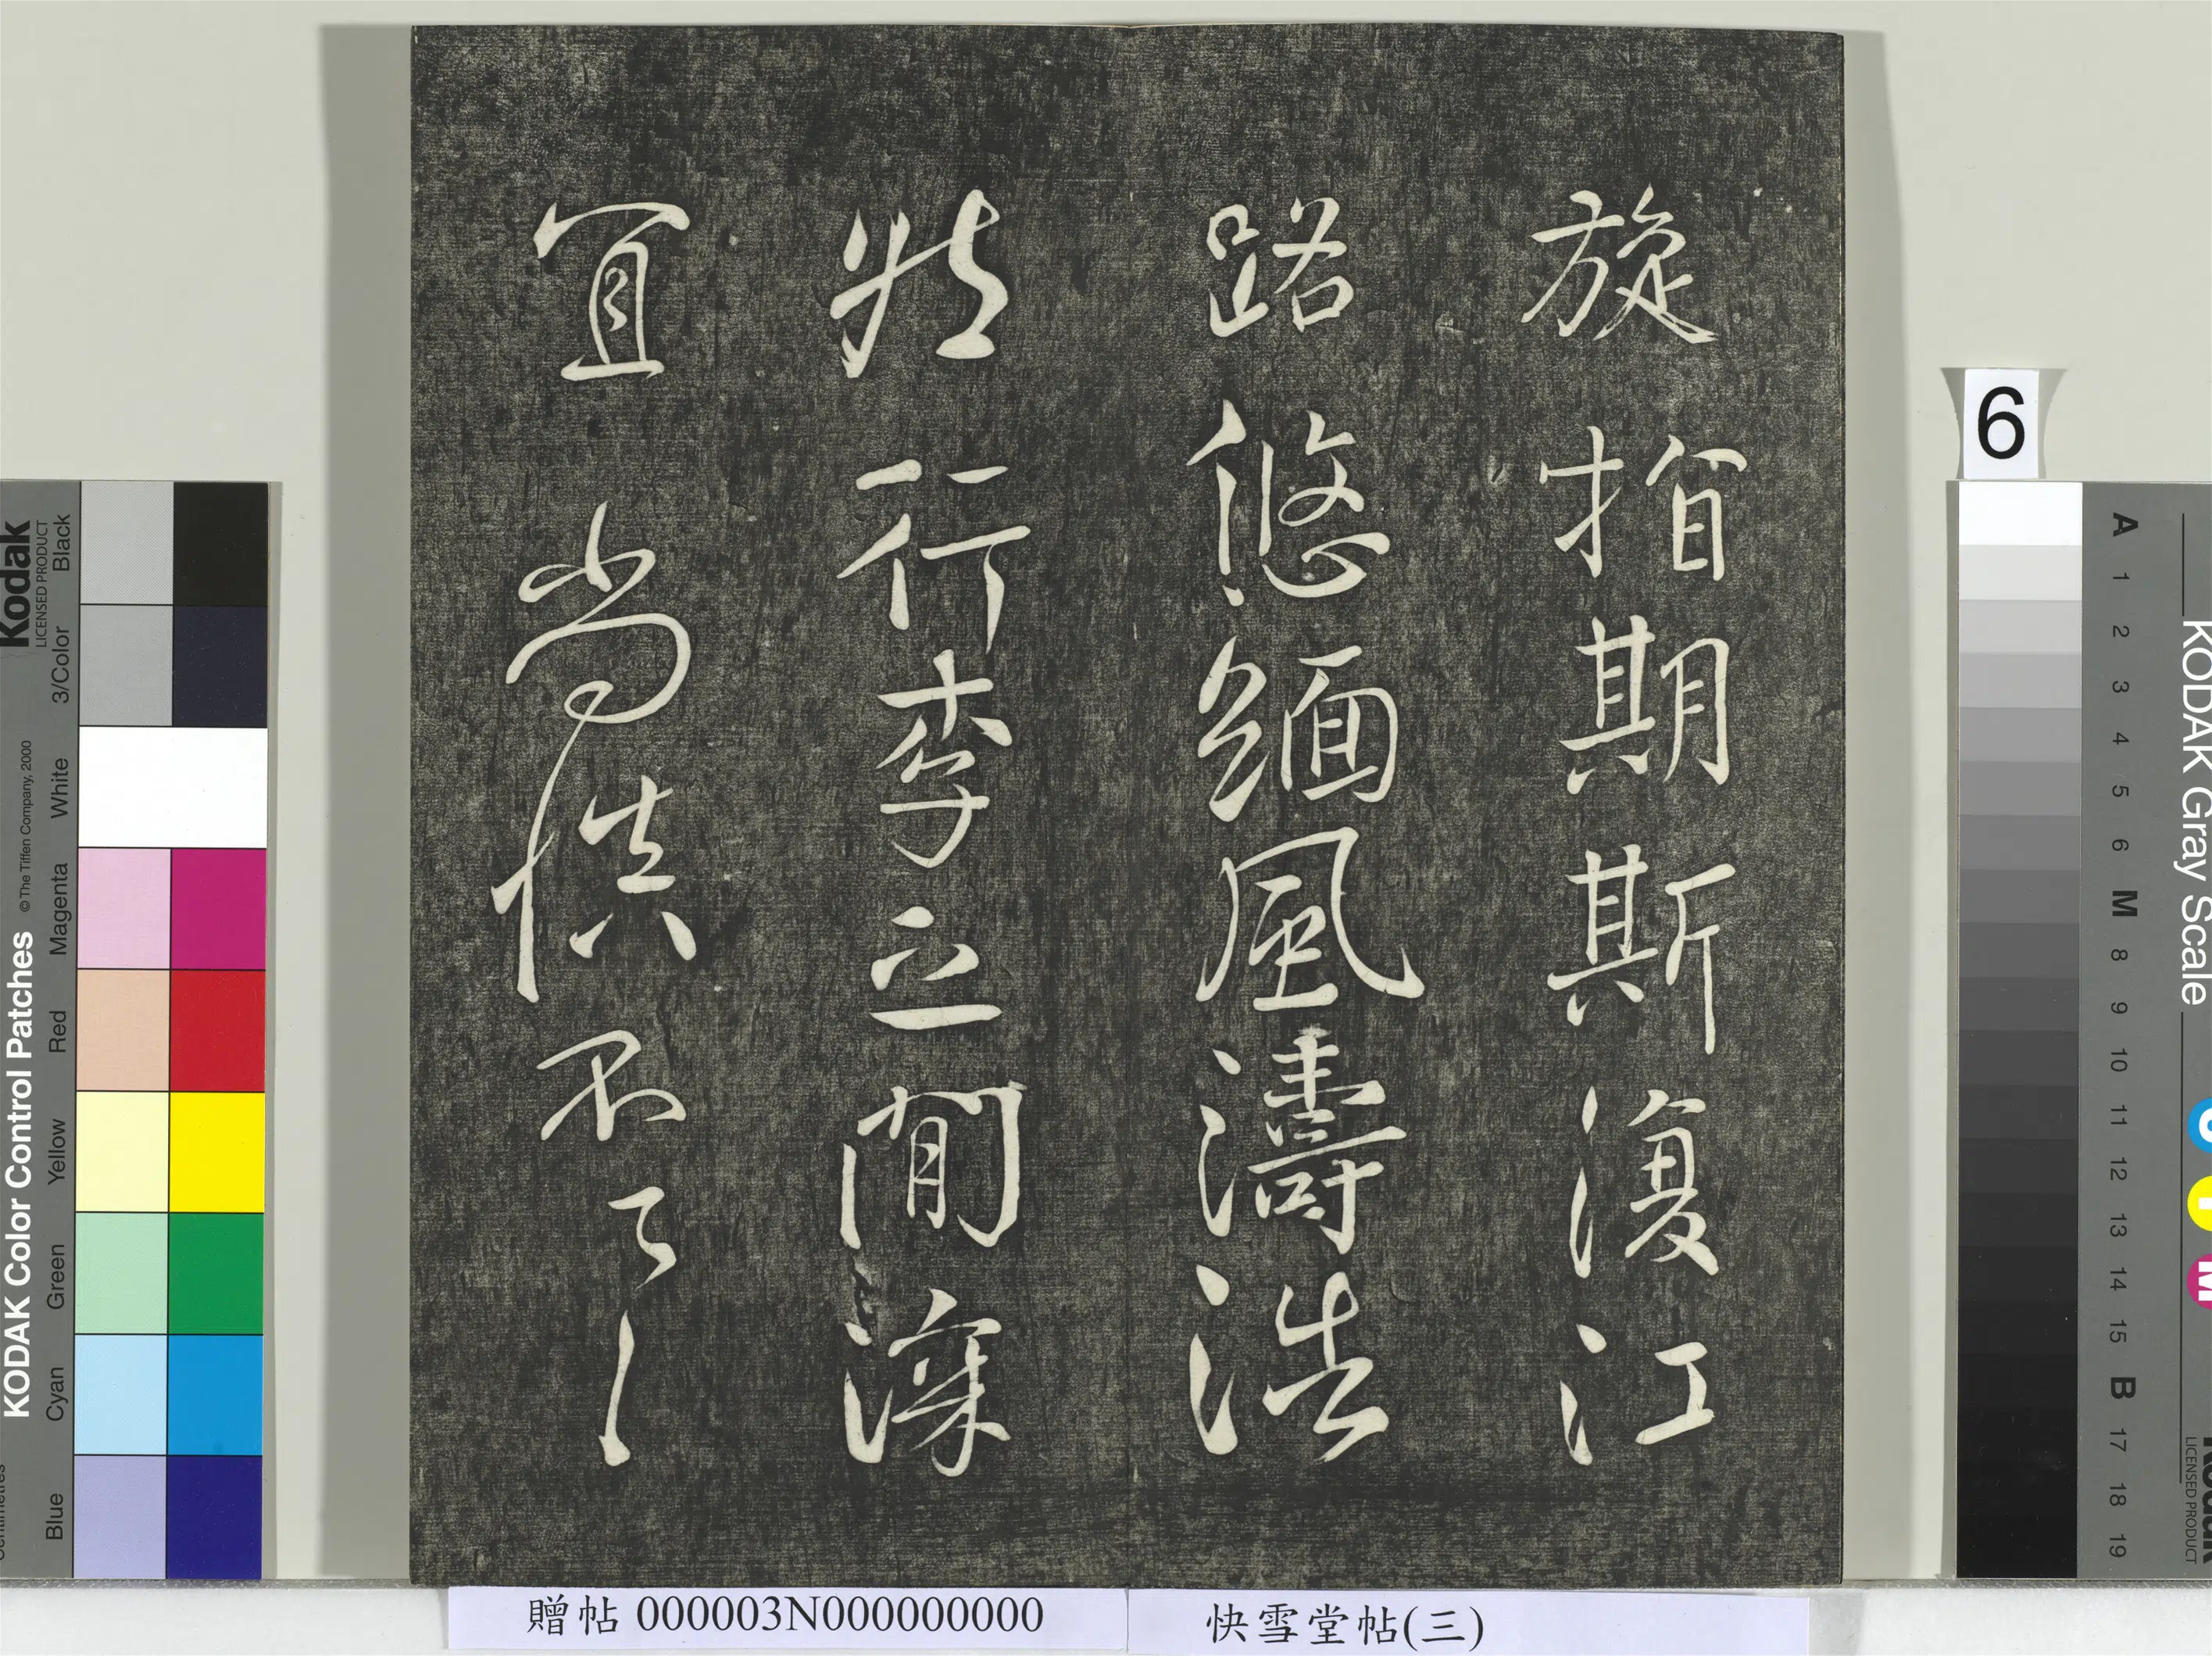 旋指期斯復江
路悠緬風濤浩
然行李之間深
宜尚慎不了
6
贈帖 000003N000000000
快雪堂帖(三)
KODAK Color Control Patches
© The Tiffen Company, 2000
Kodak
LICENSED PRODUCT
Blue Cyan Green Yellow Red Magenta White 3/Color Black
KODAK Gray Scale
A 1 2 3 4 5 6 M 8 9 10 11 12 13 14 15 B 17 18 19
LICENSED PRODUCT